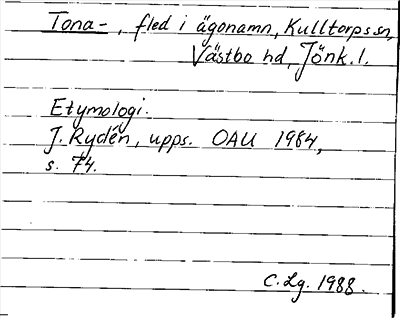 Tona-, fled i ägonamn, Kulltorps sn,
Västbo hd, Jönk. l.
Etymologi.
J. Rydén, upps. OAU 1984,
s. 74.
C. Lg. 1988.